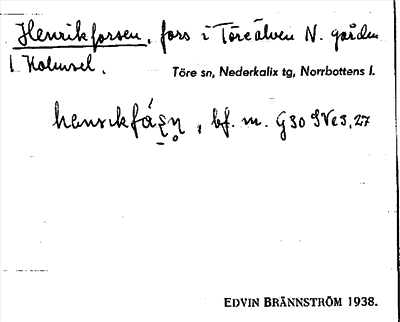 Henrikforsen, fors i Töreälven N. gården
1 Holmsel.
Töre sn, Nederkalix tg, Norrbottens l.
henrikfá̱ṣn̥, bf. m. G30 SV e3,27
EDVIN BRÄNNSTRÖM 1938.